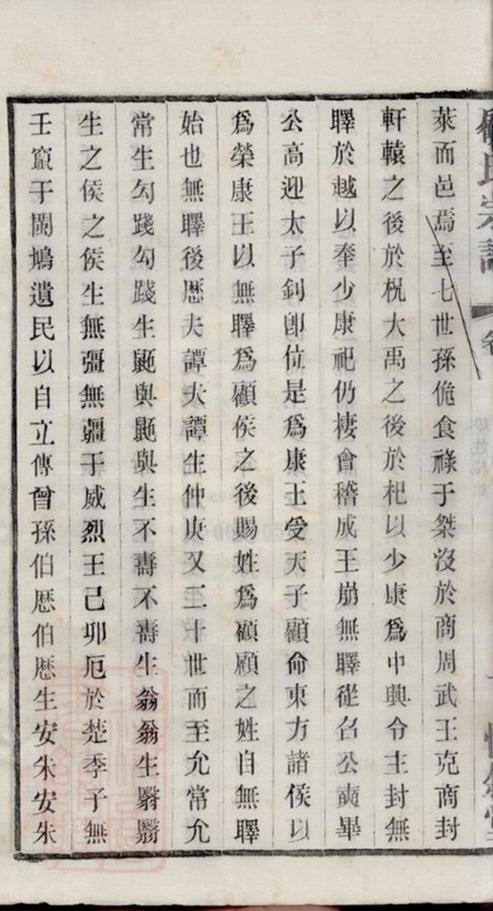 萊而邑焉至七世孫佹食祿于桀沒於商周武王克商封
軒轅之後於祝大禹之後於杞以少康為中興令主封無
睪於越以奉少康祀仍棲會稽成王崩無睪從召公奭畢
公高迎太子釗卽位是為康王受天子顧命東方諸侯以
為榮康王以無睪為顧侯之後賜姓為顧顧之姓自無睪
始也無睪後歷夫譚夫譚生仲庚又二十世而至允常允
常生勾踐勾踐生鼫與鼫與生不壽不壽生翁翁生翳翳
生之侯之侯生無彊無疆于威烈王己卯厄於楚季子無
壬竄于閩鳩遺民以自立傳曾孫伯歷伯歷生安朱安朱